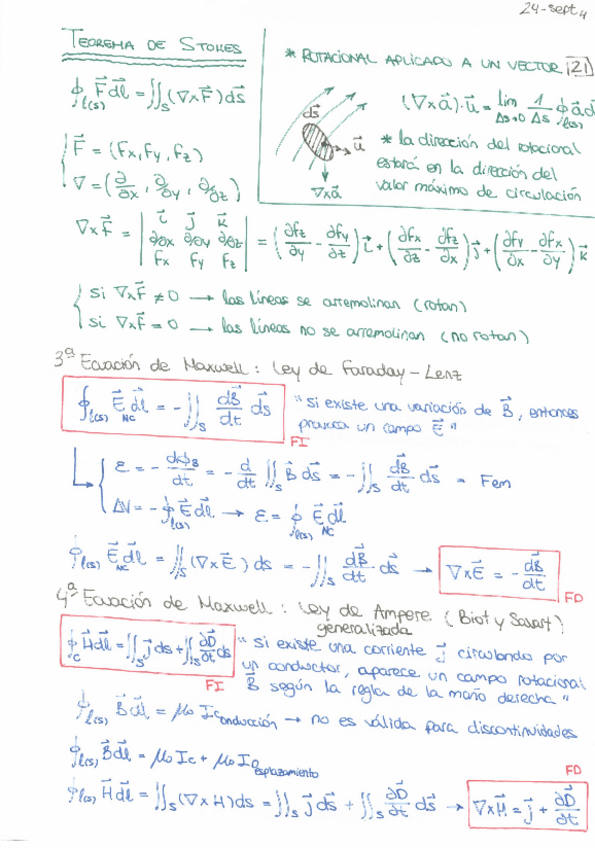 24-sept 4
TEOREMA DE STOKES
∮l(s) F⃗ dl⃗ = ∬s (∇×F⃗) ds⃗
F⃗ = (Fx, Fy, Fz)
∇ = (∂/∂x, ∂/∂y, ∂/∂z)
* ROTACIONAL APLICADO A UN VECTOR |21|
ds⃗
u⃗
∇×a⃗
(∇×a⃗)·u⃗ = lim Δs→0 1/Δs ∮l(s) a⃗ d
* la dirección del rotacional
estará en la dirección del
valor máximo de circulación
∇×F⃗ = | i⃗ j⃗ k⃗ ; ∂/∂x ∂/∂y ∂/∂z ; Fx Fy Fz | = (∂fz/∂y - ∂fy/∂z) i⃗ + (∂fx/∂z - ∂fz/∂x) j⃗ + (∂fy/∂x - ∂fx/∂y) k⃗
si ∇×F⃗ ≠ 0 → las líneas se arremolinan (rotan)
si ∇×F⃗ = 0 → las líneas no se arremolinan (no rotan)
3ª Ecuación de Maxwell : Ley de Faraday - Lenz
∮l(s) E⃗NC dl⃗ = - ∬s dB⃗/dt ds⃗
FI
"si existe una variación de B⃗, entonces
provoca un campo E⃗"
ε = - dϕB/dt = - d/dt ∬s B⃗ ds⃗ = - ∬s dB⃗/dt ds⃗ = Fem
ΔV = - ∮l(s) E⃗ dl⃗ → ε = ∮l(s) E⃗ dl⃗
∮l(s) E⃗NC dl⃗ = ∬s (∇×E⃗) ds = - ∬s dB⃗/dt · ds⃗ → ∇×E⃗ = - dB⃗/dt
FD
4ª Ecuación de Maxwell : Ley de Ampere (Biot y Savart)
generalizada
∮c H⃗ dl⃗ = ∬s j⃗ ds + ∬s ∂D⃗/∂t ds
FI
"si existe una corriente j⃗ circulando por
un conductor, aparece un campo rotacional
B⃗ según la regla de la mano derecha"
∮l(s) B⃗ dl⃗ = μ0 Iconducción → no es válida para discontinuidades
∮l(s) B⃗ dl⃗ = μ0 Ic + μ0 ID
desplazamiento
FD
∮l(s) H⃗ dl⃗ = ∬s (∇×H) ds = ∬s j⃗ ds⃗ + ∬s ∂D⃗/∂t ds⃗ → ∇×H⃗ = j⃗ + ∂D⃗/∂t